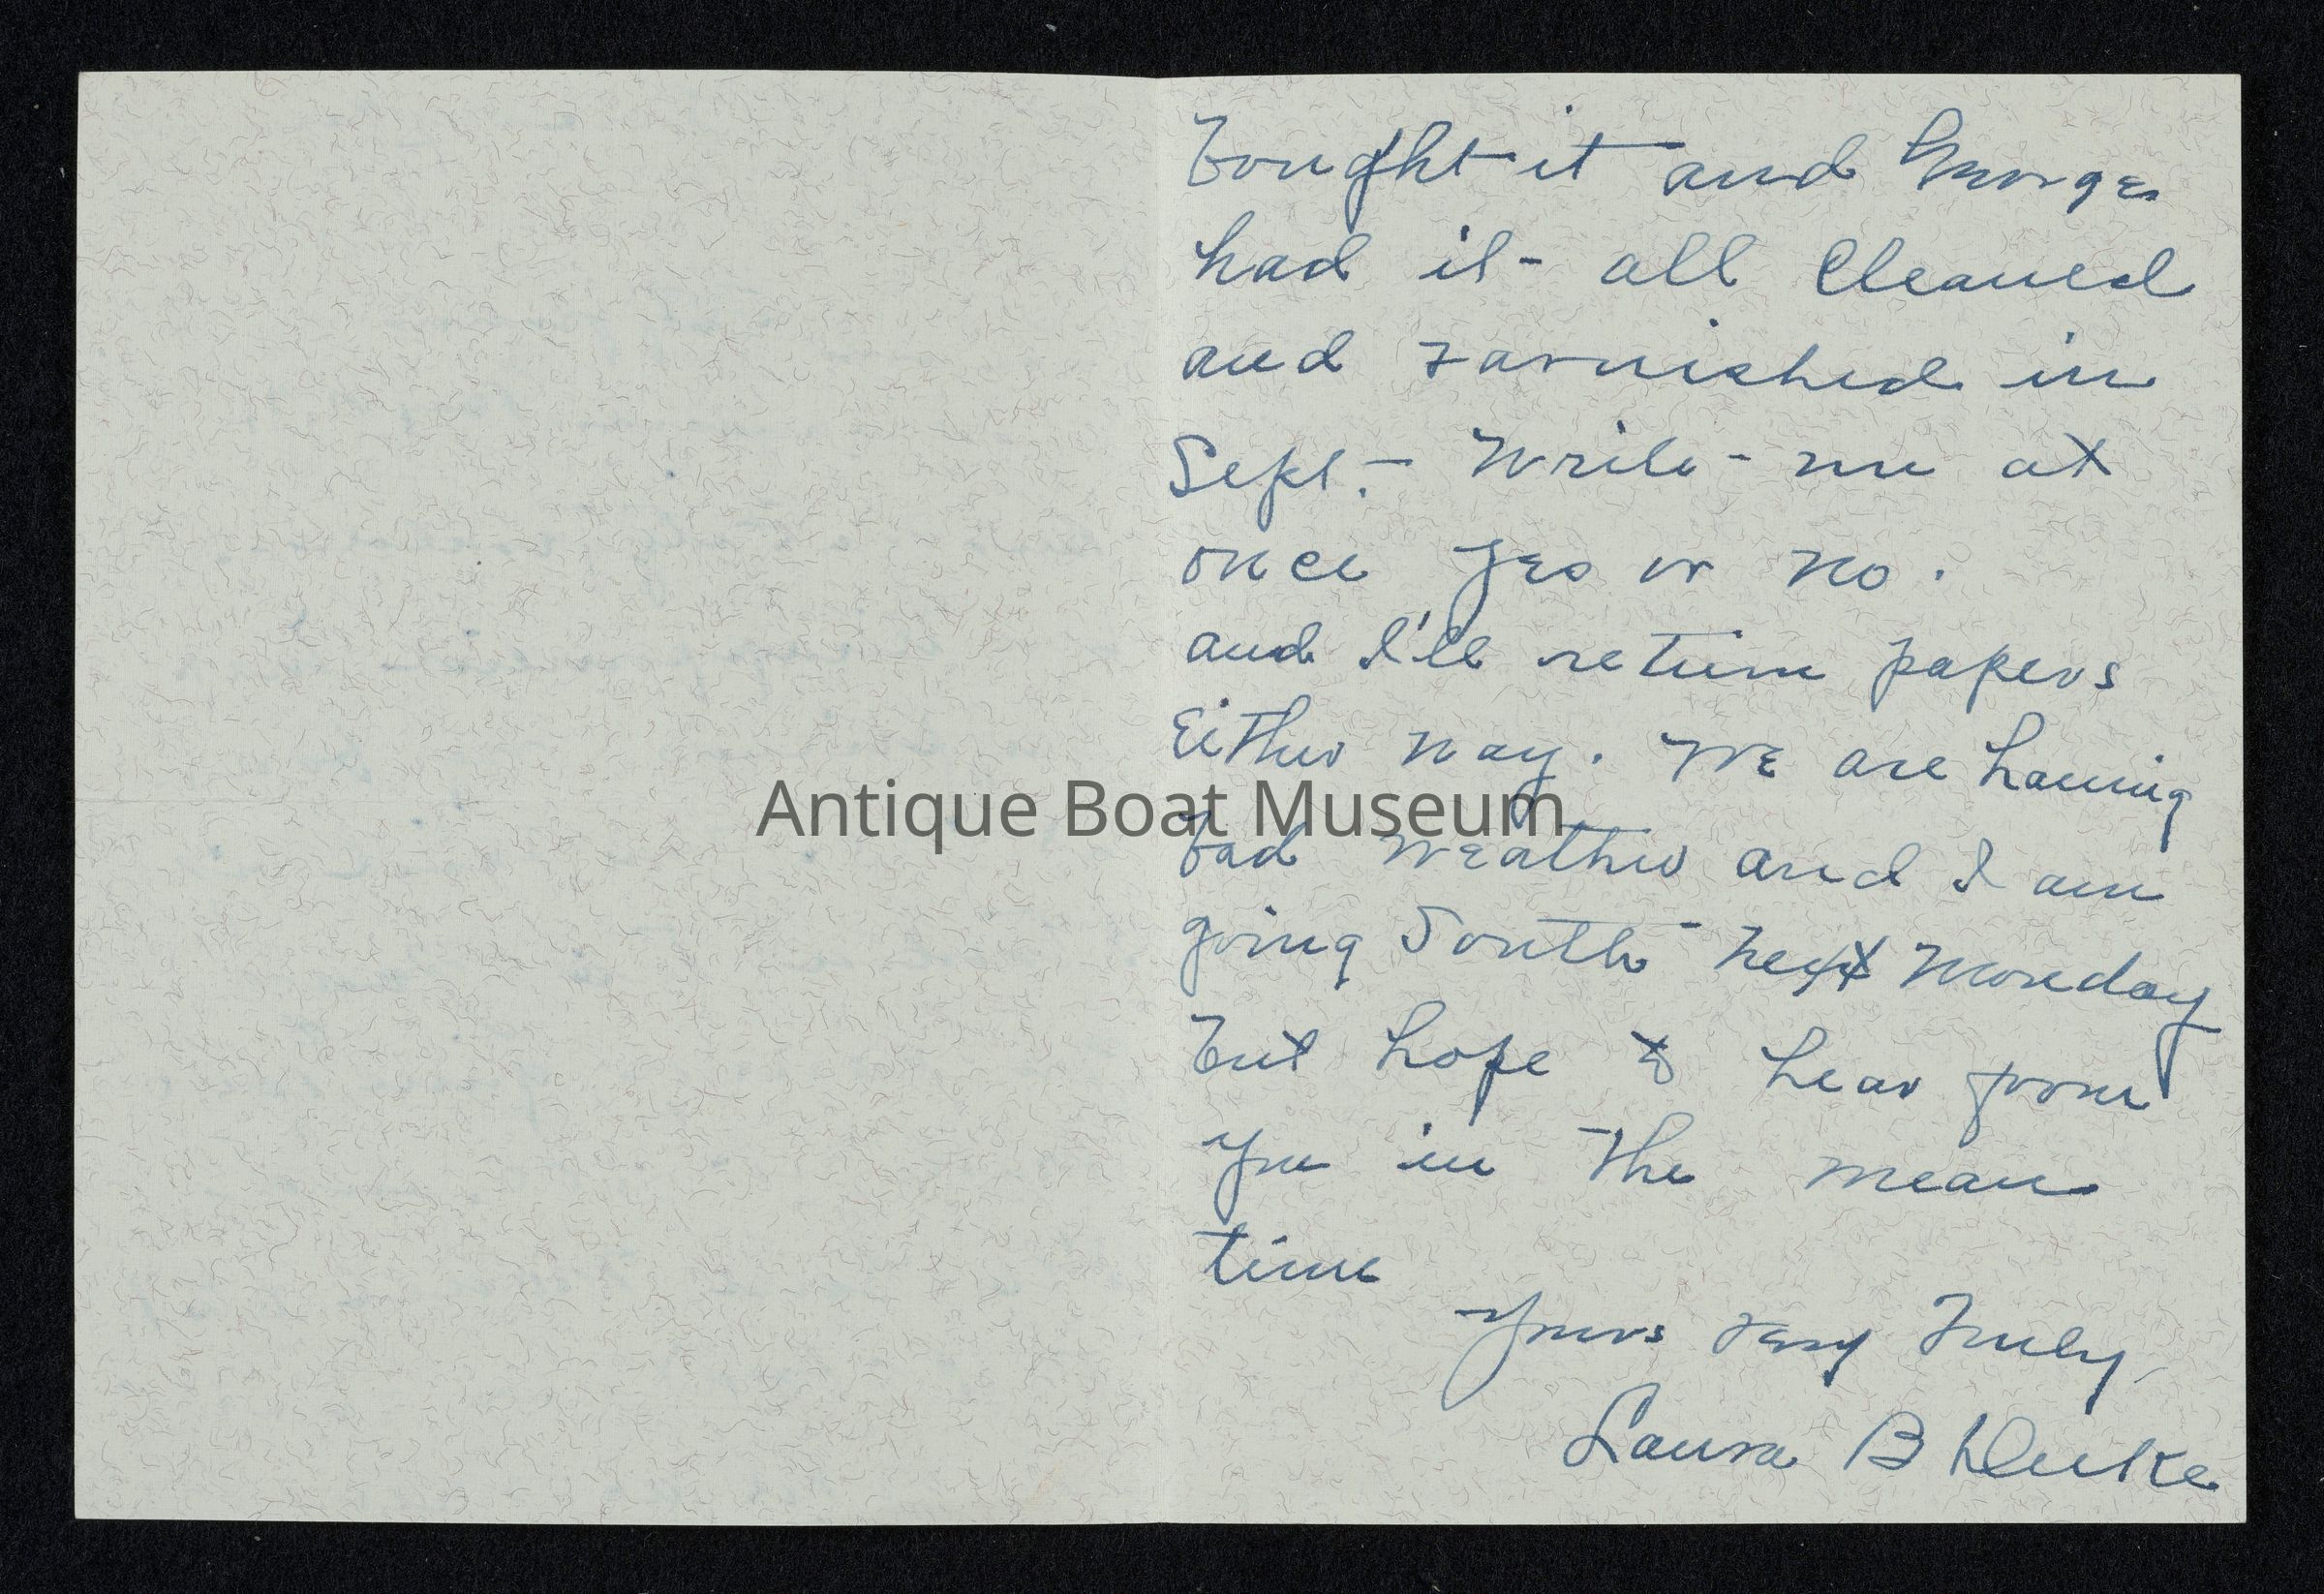 bought it and George
had it - all Cleaned
and varnished in
Sept. - Write - me at
once yes or no.
and I'll return papers
Either way. We are having
bad weather and I am
going South - next Monday
but hope to hear from
you in the mean
time
Yours very Truly,
Laura B Duke
Antique Boat Museum